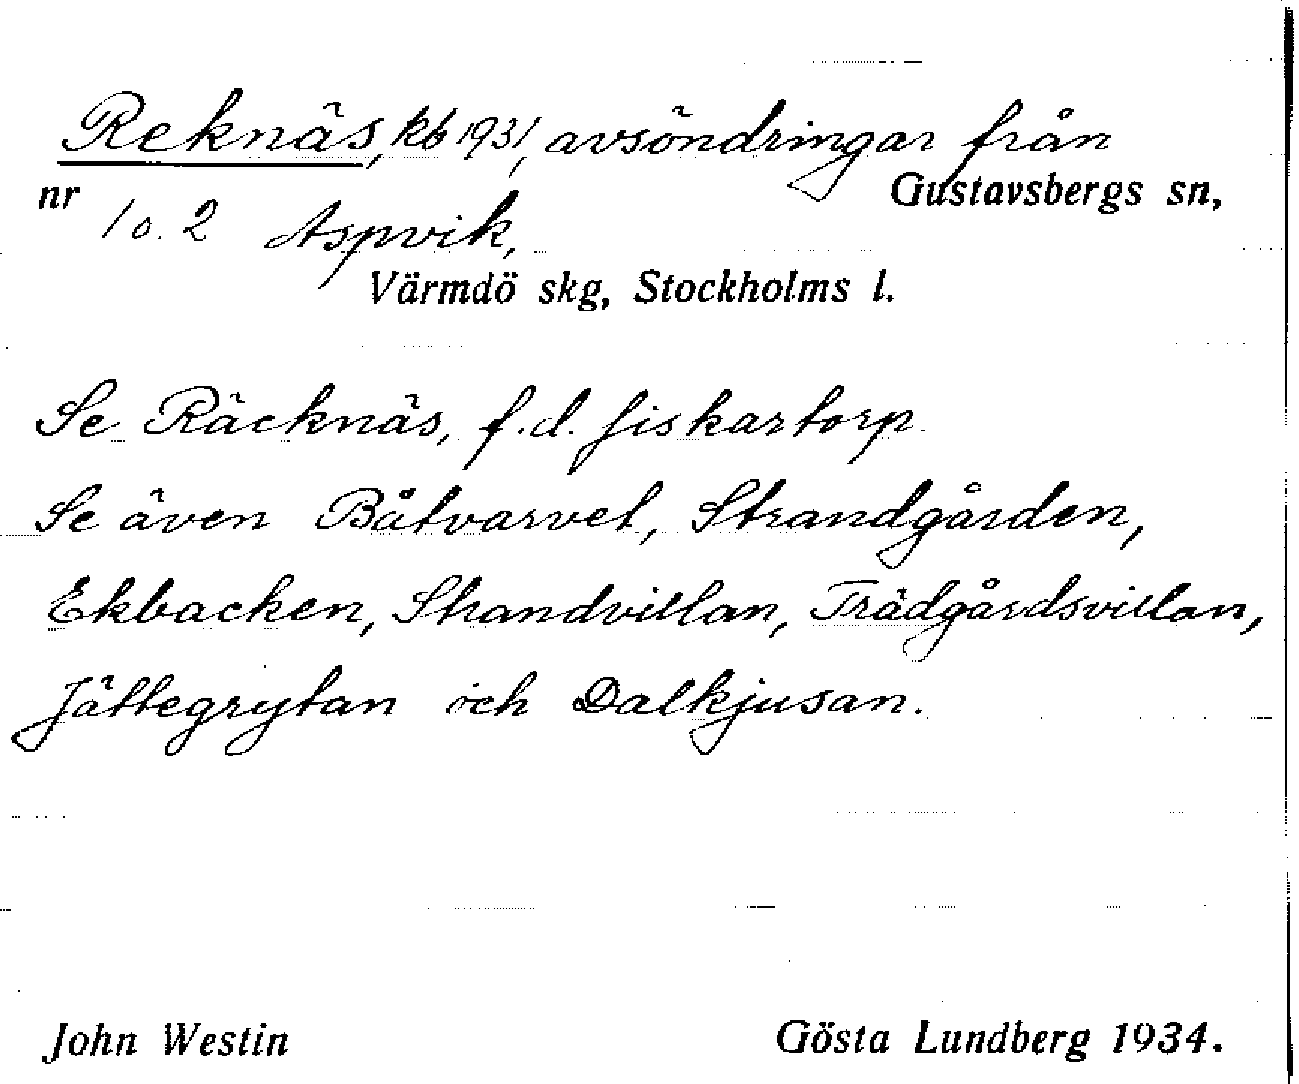 Reknäs, kb 1931, avsöndringar från
nr Gustavsbergs sn,
1 o. 2 Aspvik,
Värmdö skg, Stockholms l.
Se Räcknäs, f.d. fiskartorp.
Se även Båtvarvet, Strandgården,
Ekbacken, Strandvillan, Trädgårdsvillan,
Jättegrytan och Dalkjusan.
John Westin Gösta Lundberg 1934.